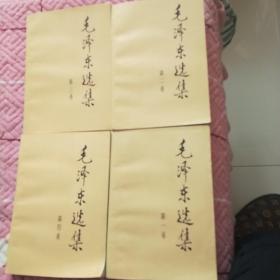 毛泽东选集
第三卷
毛泽东选集
第二卷
毛泽东选集
第四卷
毛泽东选集
第一卷